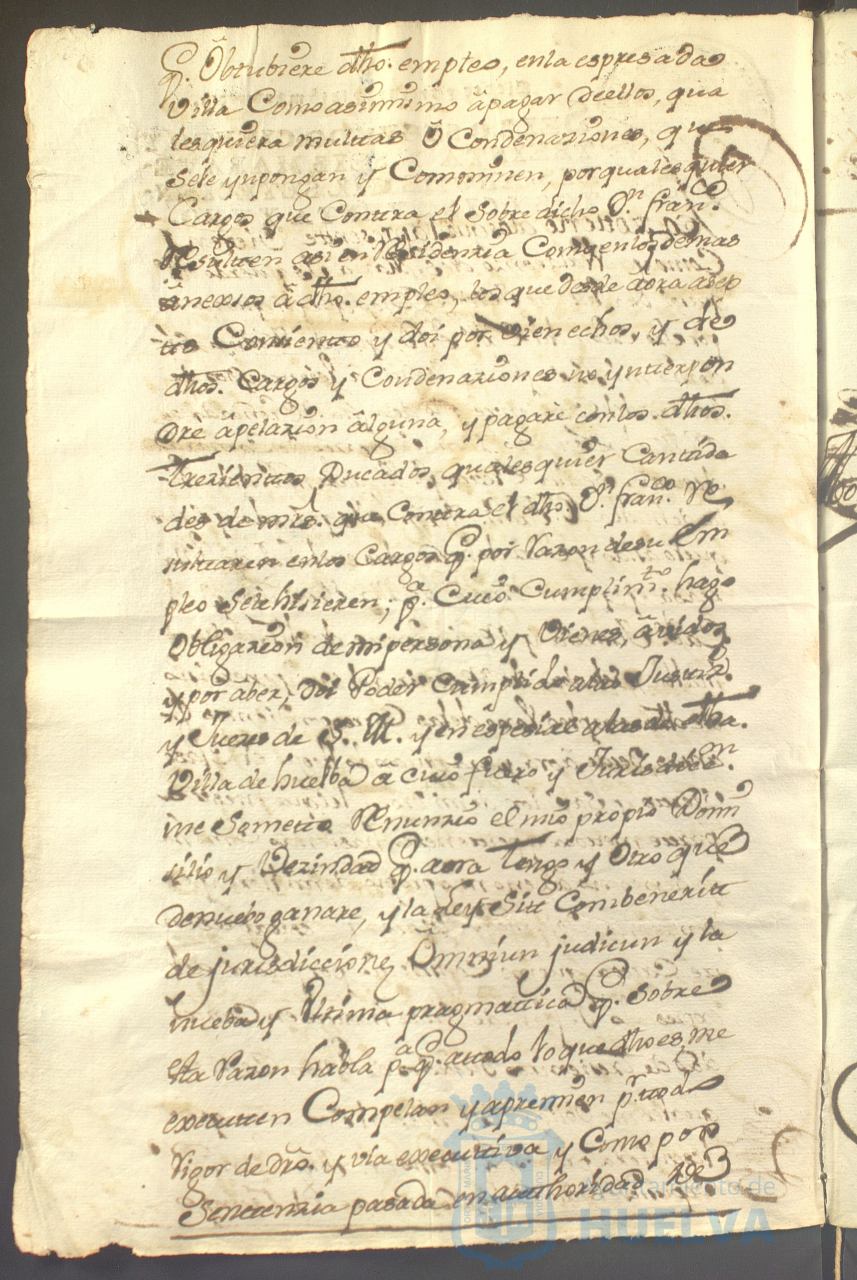 q.e Obtubiere dho. empleo, en la espresada
Villa Como asimismo â pagar de ellos, qua
lesquiera multas Ô Condenaziones, que
sele ynpongan y Cominen, por qualesquier
Cargos que Contra el sobre dicho D.n fran.co
Resulten asi en Residenzia Como en los demas
ânexsos â dho. empleo, los que desde aora asep
tto Consiento y doi por bien echos, y de
dhos. Cargos y Condenaziones no ynterpon
dre âpelazion âlguna, y pagare con los dhos.
trezientos Ducados qualesquier Cantida
des de mrs. que Contra el dho D.n fran.co Re
sultaren en los Cargos q.e por Razon de su Em
pleo sele hisieren; p.a Cuio Cumplim.to hago
Obligazion de mi persona y Vienes, âvidos
y por aber, doi Poder Cumplido alas Justiz.s
y Juezes de S. M. y en espesial alas de dha.
Villa de huelba â cuio fuero y Jurisdiz.on
me Sometto Renunzio el mio propio Domi
silio y Vezindad q.e aora Tengo y Otro que
denuebo ganare, y la Ley Sitt Combeneritt
de jurisdiccione Ômniun judicun y la
nueba y Ultima pragmattica q.e sobre
esta Razon habla p.a q.e attodo lo que dho es, me
executten Compelan y apremien p.r ttodo
Rigor de dro. y via executtiva y Como por
Senttenzia pasada en autthoridad de
Ayuntamiento de
HUELVA